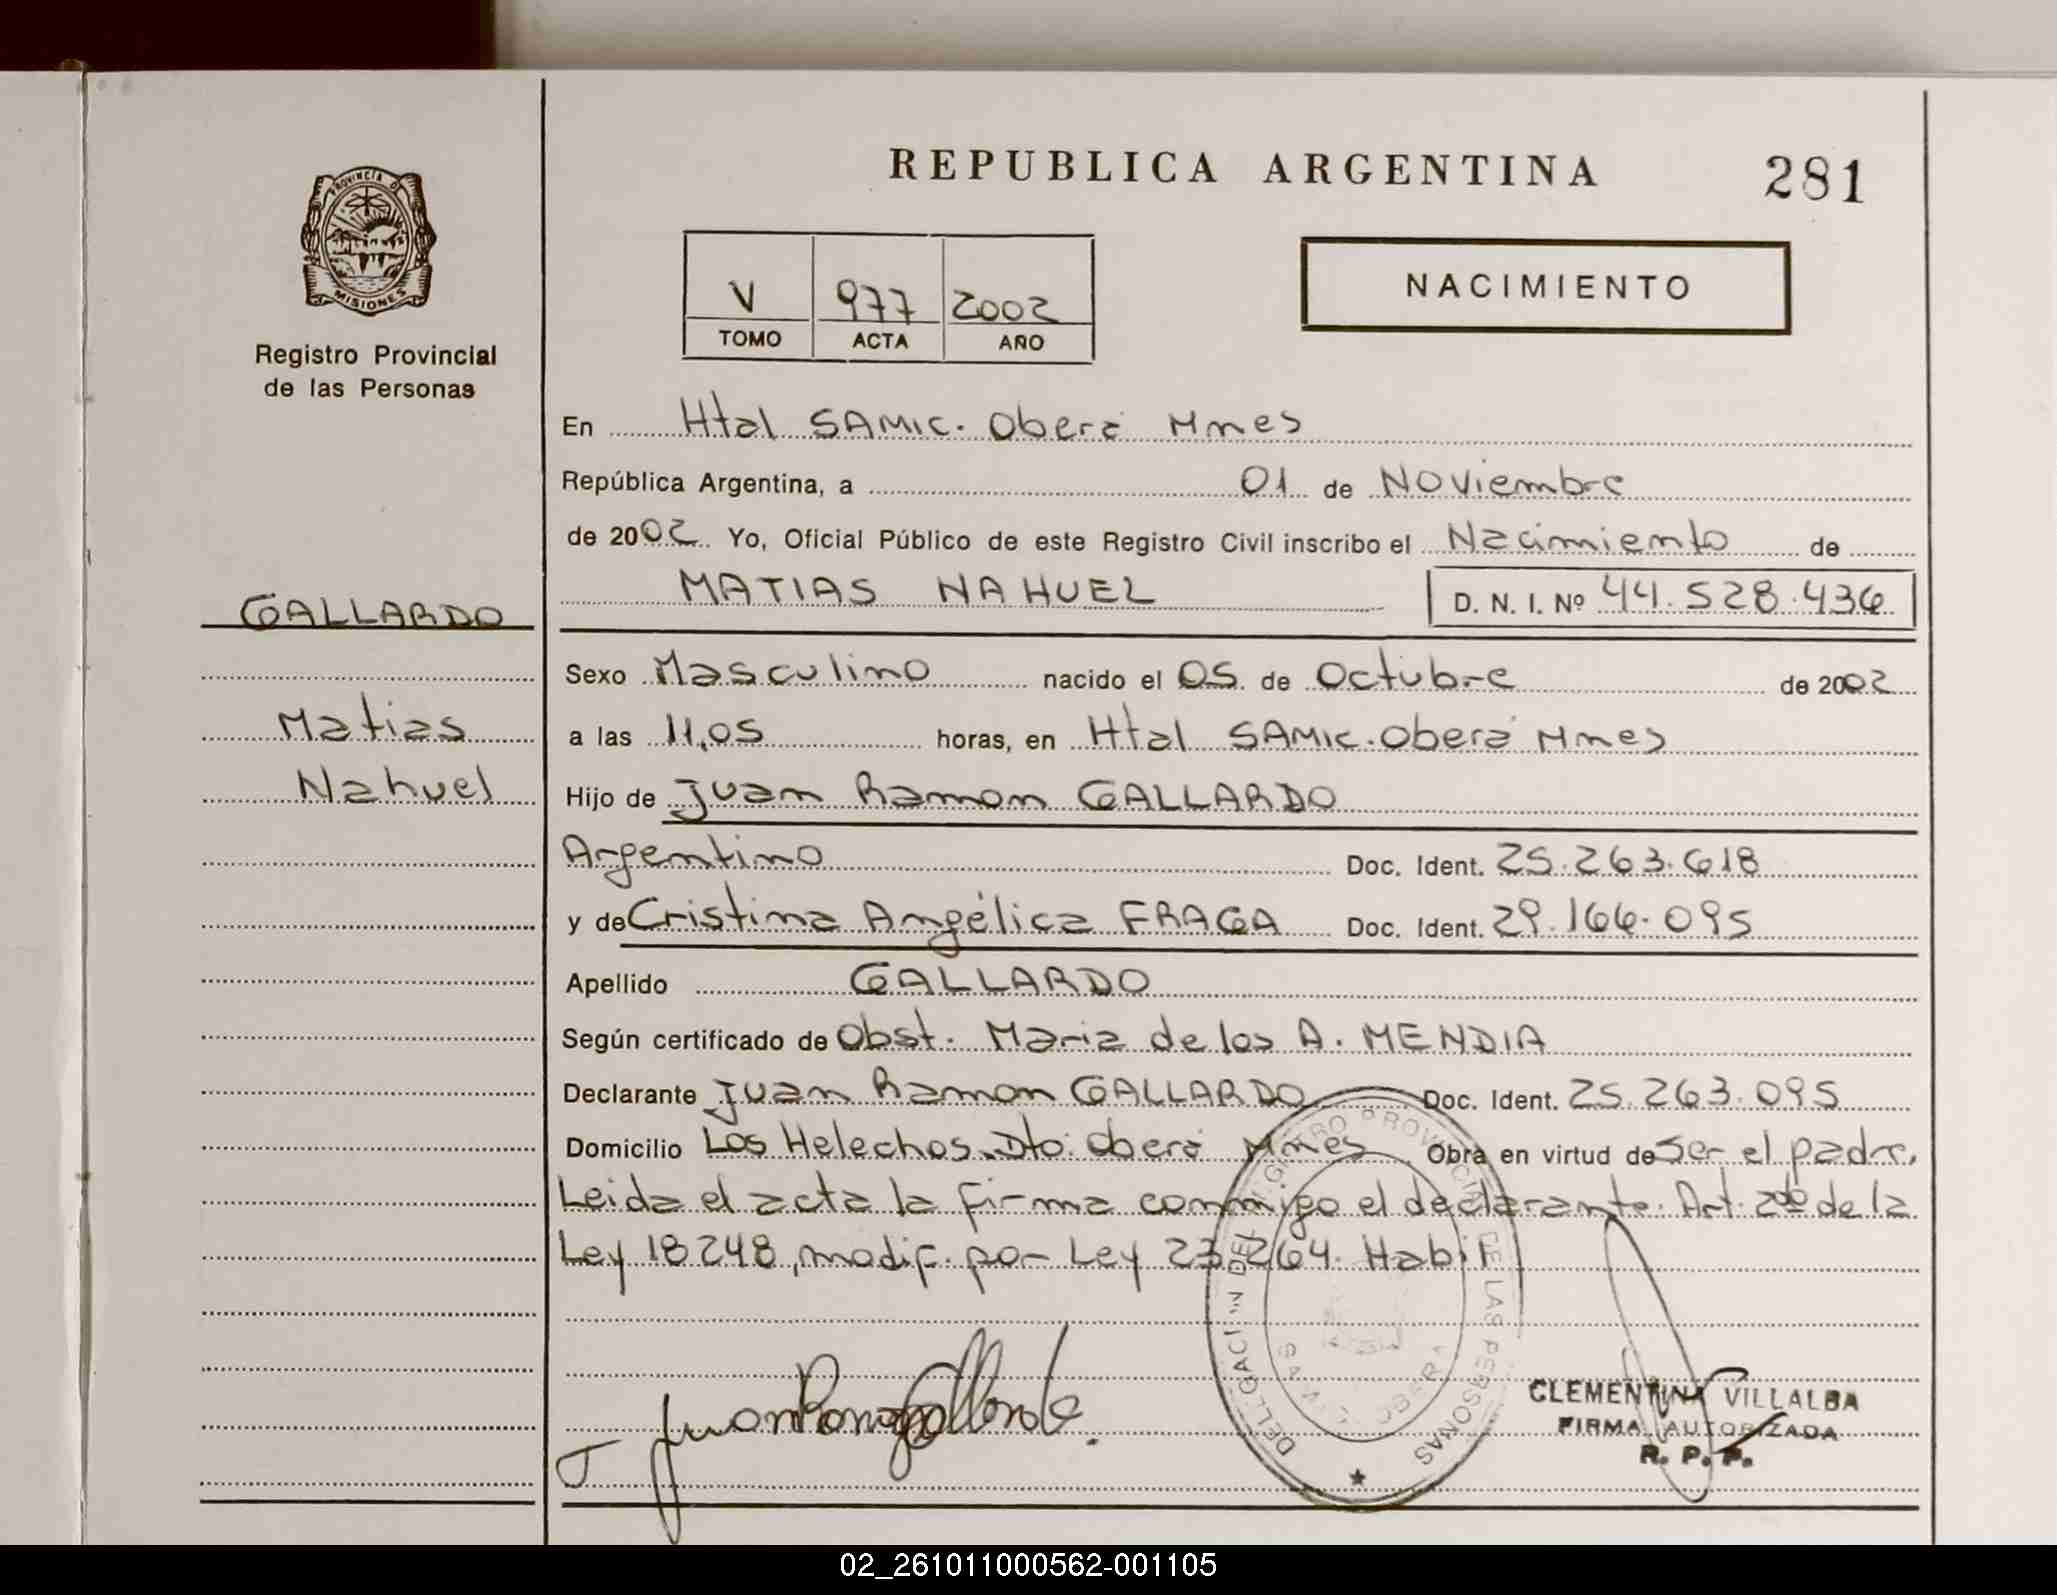 REPUBLICA ARGENTINA
281
PROVINCIA DE
MISIONES
Registro Provincial
de las Personas
V 977 2002
TOMO ACTA AÑO
NACIMIENTO
En Htal SAMIC. Oberá Mnes
República Argentina, a 01 de Noviembre
de 2002 Yo, Oficial Público de este Registro Civil inscribo el Nacimiento de
MATIAS NAHUEL D. N. I. Nº 44.528.436
GALLARDO
Matias
Nahuel
Sexo Masculino nacido el 05 de Octubre de 2002
a las 11,05 horas, en Htal SAMIC. Oberá Mnes
Hijo de Juan Ramon GALLARDO
Argentino Doc. Ident. 25.263.618
y de Cristina Angélica FRAGA Doc. Ident. 29.166.095
Apellido GALLARDO
Según certificado de Obst. Maria de los A. MENDIA
Declarante Juan Ramon GALLARDO Doc. Ident. 25.263.095
Domicilio Los Helechos. Dto: Oberá Mnes Obra en virtud de ser el padre,
Leida el acta la firma conmigo el declarante. Art. 2do de la
Ley 18248, modif. por Ley 23.264. Hab.
Juan Ramon Gallardo.
CLEMENTINA VILLALBA
FIRMA AUTORIZADA
R. P. P.
02_261011000562-001105